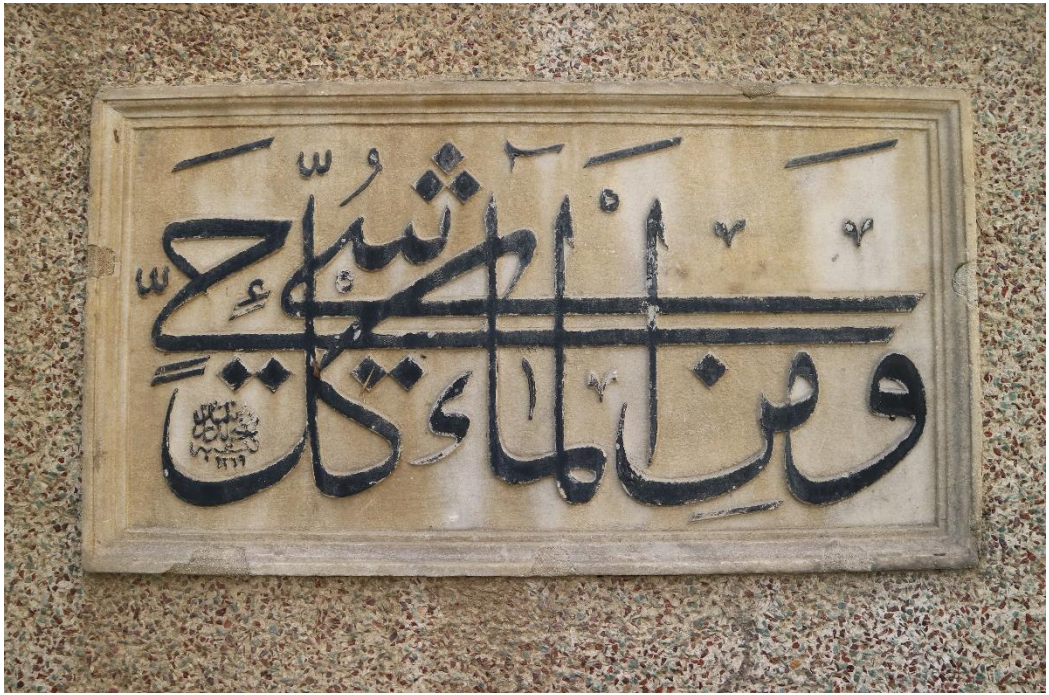 وَمِنَ الْمَاءِ كُلُّ شَيْءٍ حَيٍّ